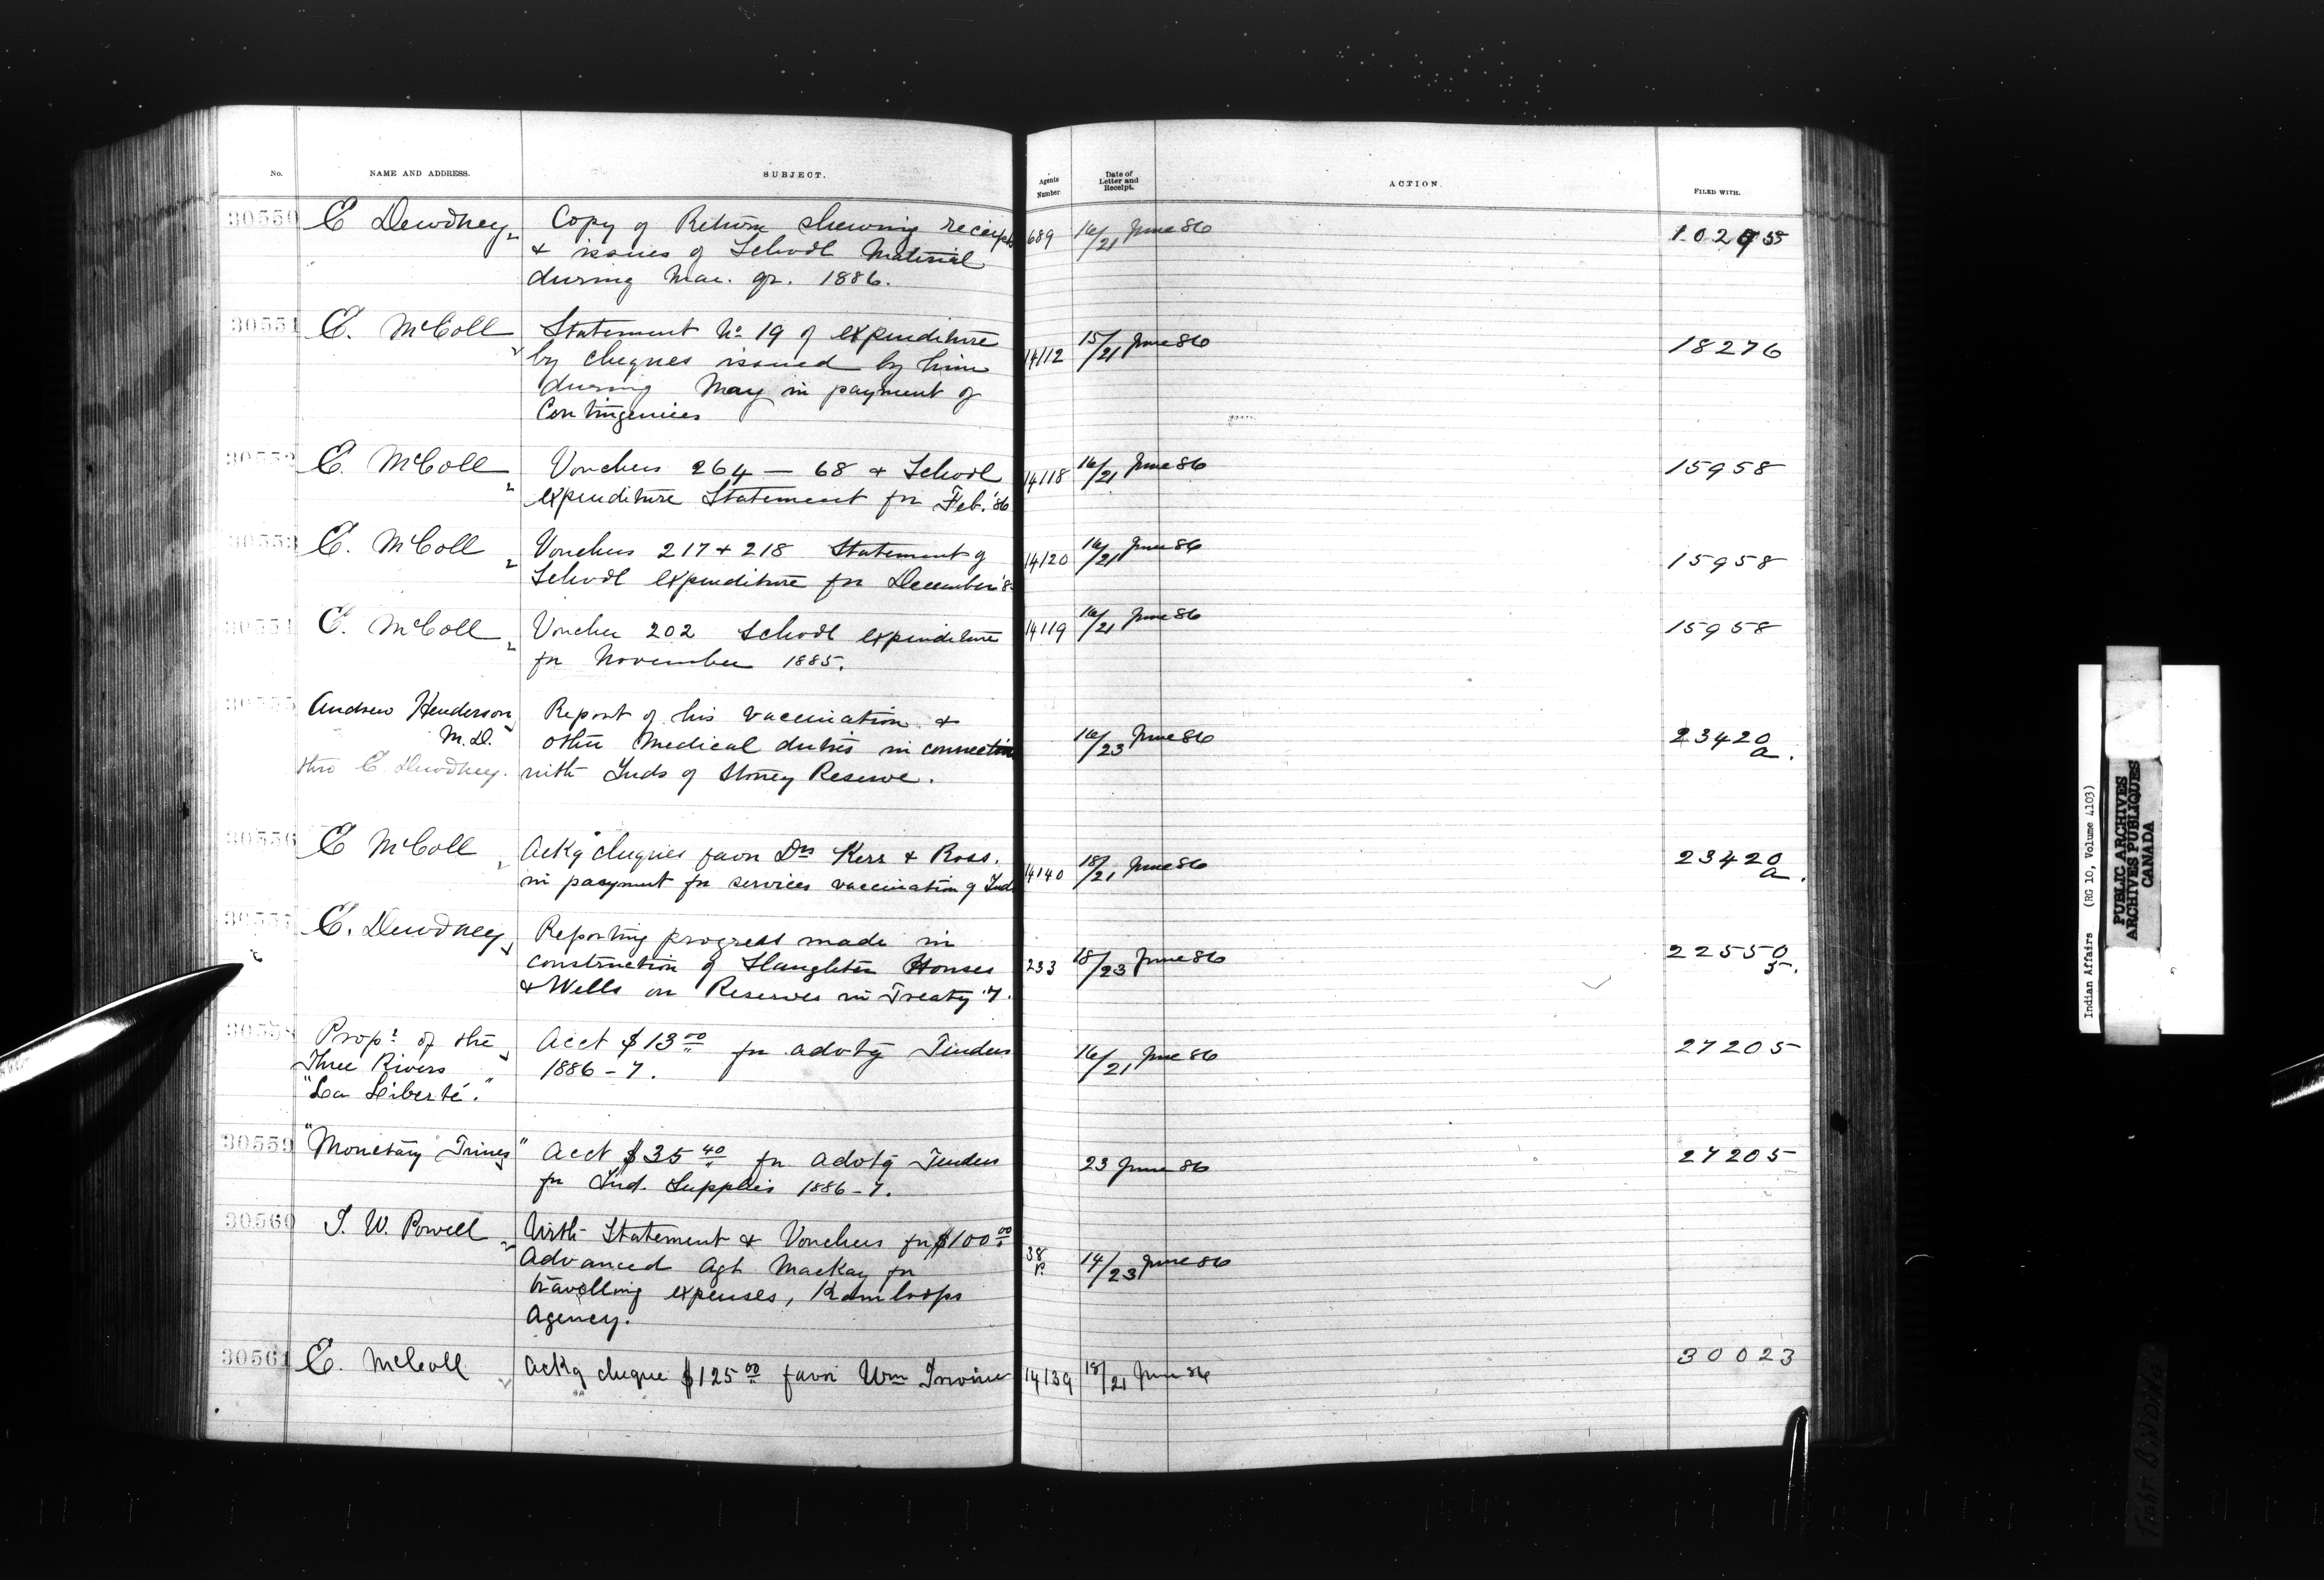 No. NAME AND ADDRESS. SUBJECT. Agents Number Date of Letter and Receipt. ACTION. FILED WITH.
30550 E Dewdney Copy of Return shewing receipts 689 16/21 June 86
& issues of School Material
during Mar. qr. 1886.
30551 E. McColl Statement No 19 of expenditure 14112 15/21 June 86 18276
by cheques issued by him
during May in payment of
Contingencies
30552 E. McColl Vouchers 264 — 68 & School 14118 16/21 June 86 15958
expenditure Statement for Feb. '86
30553 E. McColl Vouchers 217 & 218 Statement of 14120 16/21 June 86 15958
School expenditure for December '8
30554 E. McColl Voucher 202 School expenditure 14119 16/21 June 86 15958
for November 1885.
30555 Andrew Henderson Report of his vaccination & 16/23 June 86 23420 a.
M.D. other Medical duties in connection
thro E. Dewdney. with Inds of Stoney Reserve.
30556 E McColl Ackg cheques favor Drs Kerr & Ross. 14140 18/21 June 86 23420 a.
in payment for services vaccination of Inds
30557 E. Dewdney Reporting progress made in 233 18/23 June 86 22550 5.
construction of Slaughter Houses
& Wells on Reserves in Treaty 7.
30558 Propr of the Acct $13 00 for advtg Tenders 16/21 June 86 27205
Three Rivers 1886-7.
"La Liberté."
30559 "Monetary Times" Acct $35 40 for advtg Tenders 23 June 86 27205
for Ind. Supplies 1886-7.
30560 I. W. Powell With Statement & Vouchers for $100 00 38 14/23 June 86
Advanced Agt MacKay for
travelling expenses, Kamloops
Agency.
30561 E. McColl Ackg cheque $125 00 favor Wm Irvine 14139 18/21 June 86 30023
Indian Affairs (RG 10, Volume 4103)
PUBLIC ARCHIVES
ARCHIVES PUBLIQUES
CANADA